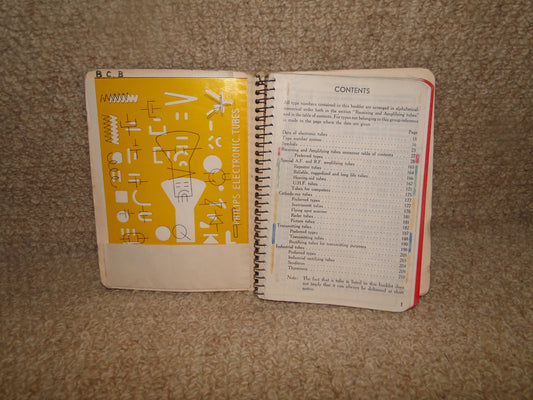 B C B
PHILIPS ELECTRONIC TUBES
CONTENTS
All type numbers contained in this booklet are arranged in alphabetical
numerical order both in the section "Receiving and Amplifying tubes"
and in the table of contents. For types not belonging to this group reference
is made to the page where the data are given.
Page
Data of electronic tubes
Type number system
Symbols
Receiving and Amplifying tubes
Preferred types
Special A.F. and R.F. amplifying tubes
Repeater tubes 163
Reliable, ruggedized and long life tubes 164
Hearing-aid tubes 166
U.H.F. tubes 167
Tubes for computers
Cathode-ray tubes 175
Preferred types 177
Instrument tubes 177
Flying spot scanner 178
Radar tubes
Picture tubes 181
Transmitting tubes
Preferred types 187
Transmitting tubes
Rectifying tubes for transmitting purposes
Industrial tubes
Preferred types
Industrial rectifying tubes
Senditron
Thyratrons
Note: The fact that a tube is listed in this booklet does
not imply that it can always be delivered at short
notice.
1